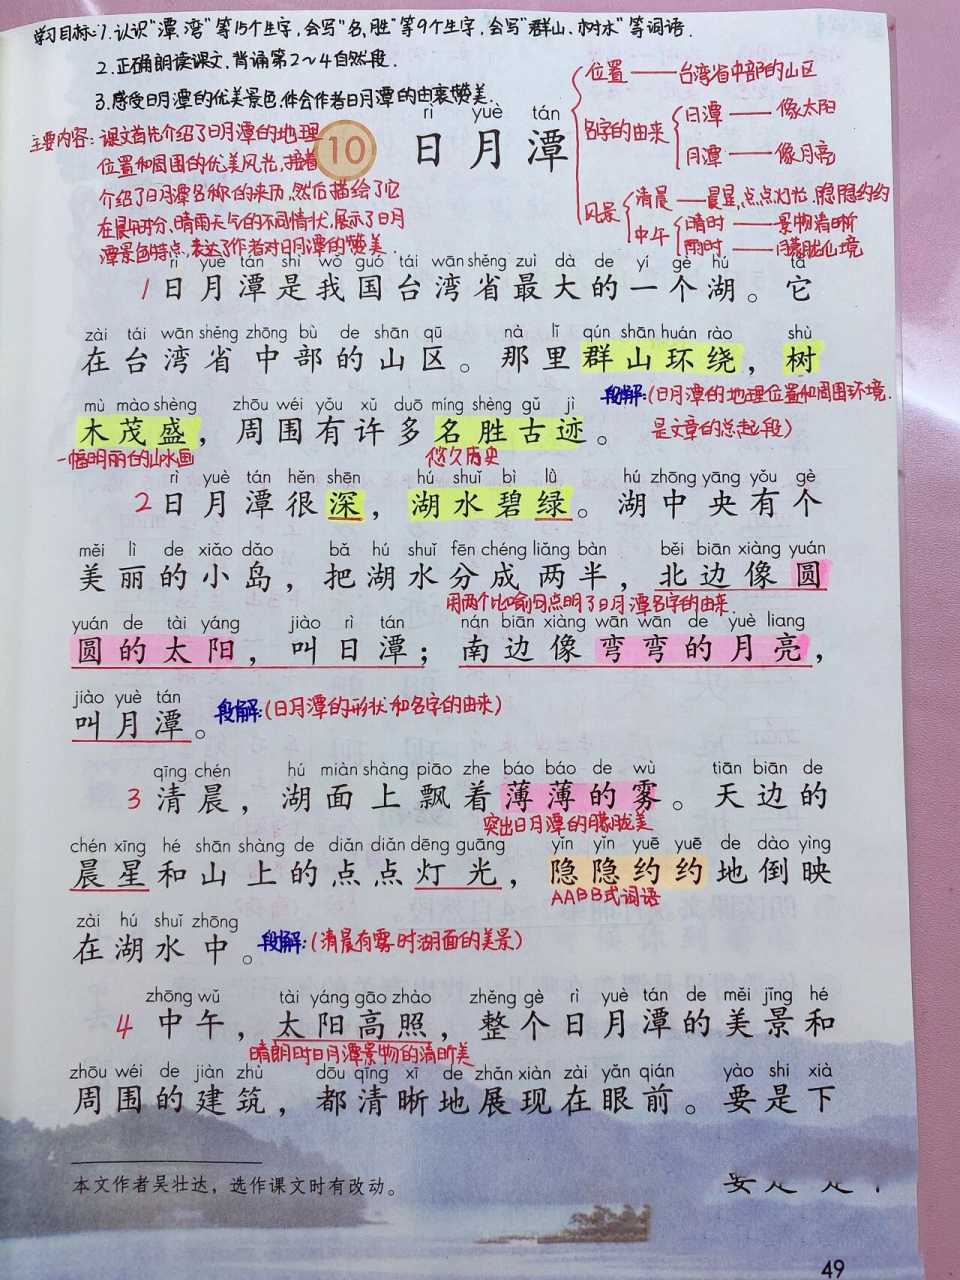 学习目标:1.认识“潭、湾”等15个生字,会写“名、胜”等9个生字,会写“群山、树木”等词语.
2.正确朗读课文.背诵第2~4自然段.
3.感受日月潭的优美景色,体会作者日月潭的由衷赞美.
主要内容:课文首先介绍了日月潭的地理
位置和周围的优美风光,接着
介绍了日月潭名称的来历,然后描绘了它
在晨午时分,晴雨天气的不同情状,展示了日月
潭景色特点,表达了作者对日月潭的赞美.
10
rì yuè tán
日月潭
位置——台湾省中部的山区
名字的由来
日潭——像太阳
月潭——像月亮
风景
清晨——晨星,点点灯光,隐隐约约
中午
晴时——景物清晰
雨时——朦胧仙境
rì yuè tán shì wǒ guó tái wān shěng zuì dà de yí gè hú tā
1日月潭是我国台湾省最大的一个湖。它
zài tái wān shěng zhōng bù de shān qū nà lǐ qún shān huán rào shù
在台湾省中部的山区。那里群山环绕,树
段解:(日月潭的地理位置和周围环境.
是文章的总起段)
mù mào shèng zhōu wéi yǒu xǔ duō míng shèng gǔ jì
木茂盛,周围有许多名胜古迹。
一幅明丽的山水画
悠久历史
rì yuè tán hěn shēn hú shuǐ bì lǜ hú zhōng yāng yǒu gè
2日月潭很深,湖水碧绿。湖中央有个
měi lì de xiǎo dǎo bǎ hú shuǐ fēn chéng liǎng bàn běi biān xiàng yuán
美丽的小岛,把湖水分成两半,北边像圆
用两个比喻句点明了日月潭名字的由来.
yuán de tài yáng jiào rì tán nán biān xiàng wān wān de yuè liang
圆的太阳,叫日潭;南边像弯弯的月亮,
jiào yuè tán
叫月潭。
段解:(日月潭的形状和名字的由来)
qīng chén hú miàn shàng piāo zhe báo báo de wù tiān biān de
3清晨,湖面上飘着薄薄的雾。天边的
突出日月潭的朦胧美
chén xīng hé shān shàng de diǎn diǎn dēng guāng yǐn yǐn yuē yuē de dào yìng
晨星和山上的点点灯光,隐隐约约地倒映
AABB式词语
zài hú shuǐ zhōng
在湖水中。
段解:(清晨有雾时湖面的美景)
zhōng wǔ tài yáng gāo zhào zhěng gè rì yuè tán de měi jǐng hé
4中午,太阳高照,整个日月潭的美景和
晴朗时日月潭景物的清晰美
zhōu wéi de jiàn zhù dōu qīng xī de zhǎn xiàn zài yǎn qián yào shi xià
周围的建筑,都清晰地展现在眼前。要是下
本文作者吴壮达,选作课文时有改动。
49